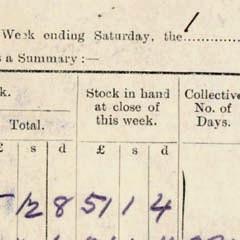 Week ending Saturday, the 1
s a Summary :—
k. Stock in hand at close of this week. Collective No. of Days.
Total.
£ s d £ s d
12 8 51 1 4